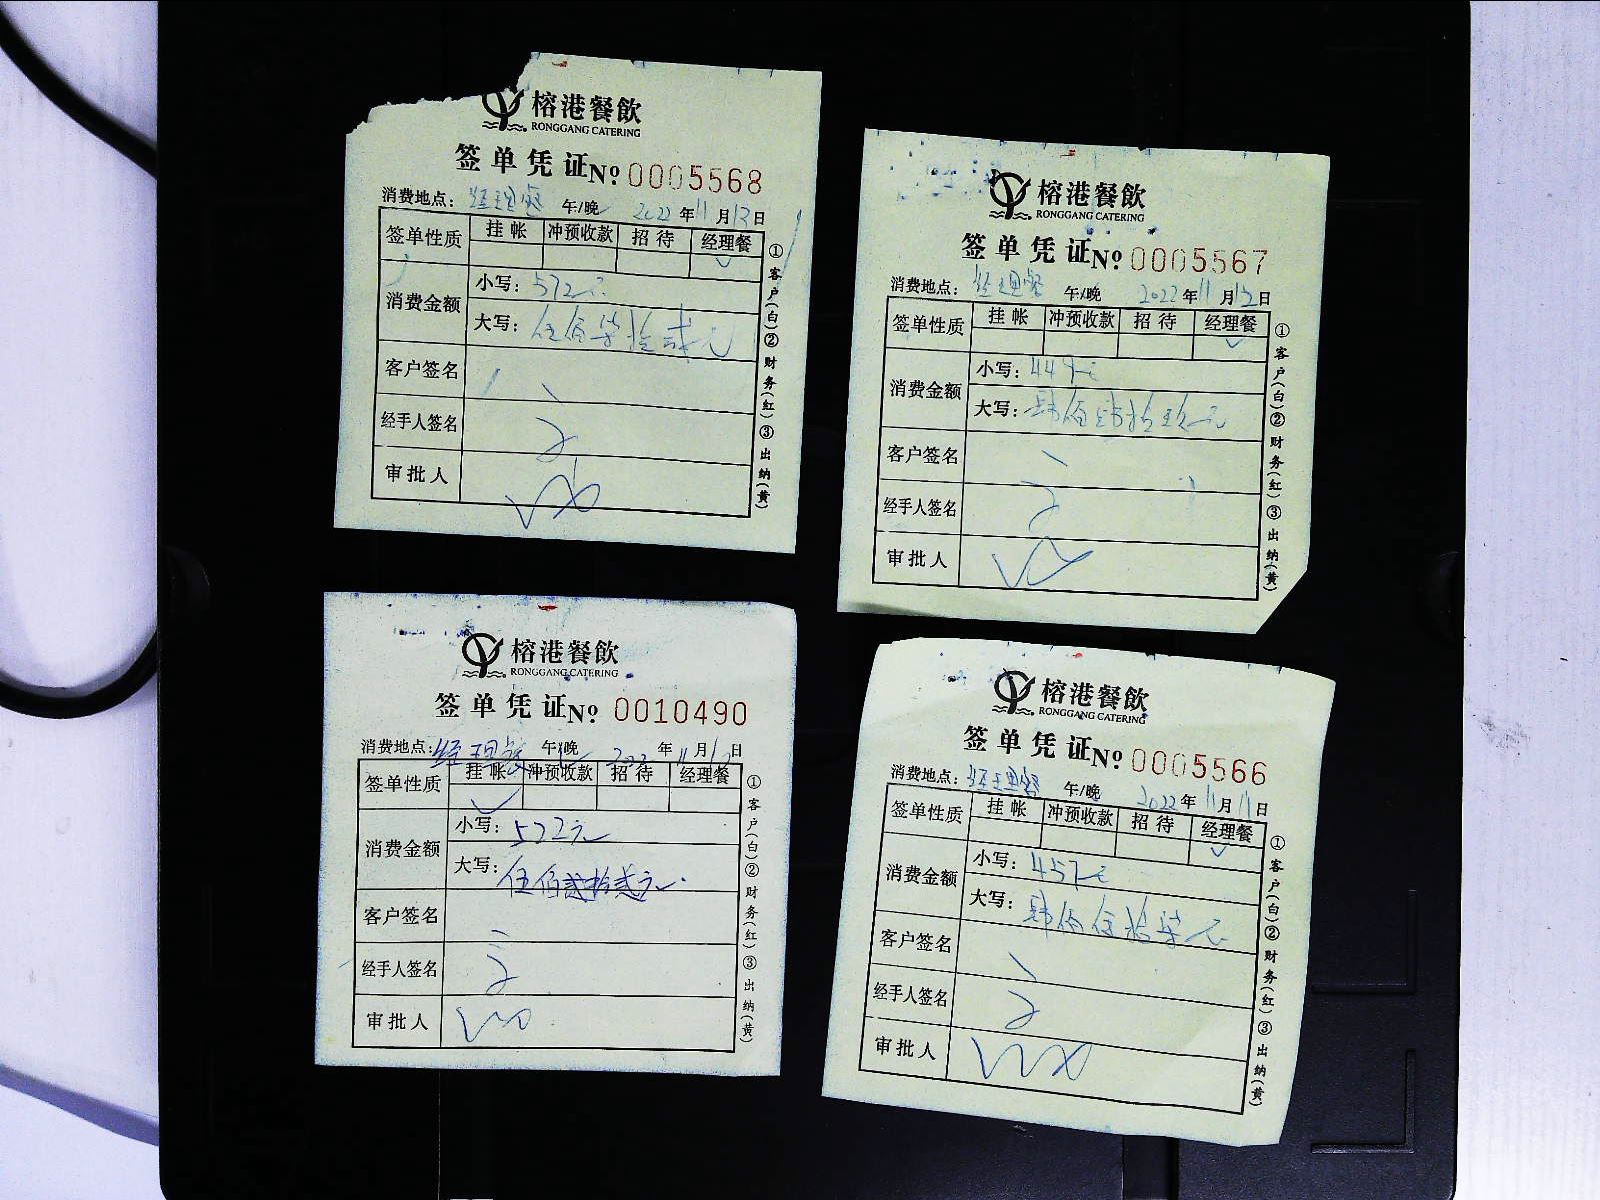 榕港餐飲
RONGGANG CATERING
签单凭证 Nº 0005568
消费地点: 经理餐 午/晚 2022 年 11 月 13 日
签单性质 挂帐 冲预收款 招待 经理餐
消费金额
小写: 572元
大写: 伍佰柒拾贰元
客户签名
经手人签名
审批人
①客户(白)②财务(红)③出纳(黄)
榕港餐飲
RONGGANG CATERING
签单凭证 Nº 0005567
消费地点: 经理餐 午/晚 2022 年 11 月 12 日
签单性质 挂帐 冲预收款 招待 经理餐
消费金额
小写: 449元
大写: 肆佰肆拾玖元
客户签名
经手人签名
审批人
①客户(白)②财务(红)③出纳(黄)
榕港餐飲
RONGGANG CATERING
签单凭证 Nº 0010490
消费地点: 经理餐 午/晚 2022 年 11 月 日
签单性质 挂帐 冲预收款 招待 经理餐
消费金额
小写: 522元
大写: 伍佰贰拾贰元
客户签名
经手人签名
审批人
①客户(白)②财务(红)③出纳(黄)
榕港餐飲
RONGGANG CATERING
签单凭证 Nº 0005566
消费地点: 经理餐 午/晚 2022 年 11 月 11 日
签单性质 挂帐 冲预收款 招待 经理餐
消费金额
小写: 457元
大写: 肆佰伍拾柒元
客户签名
经手人签名
审批人
①客户(白)②财务(红)③出纳(黄)